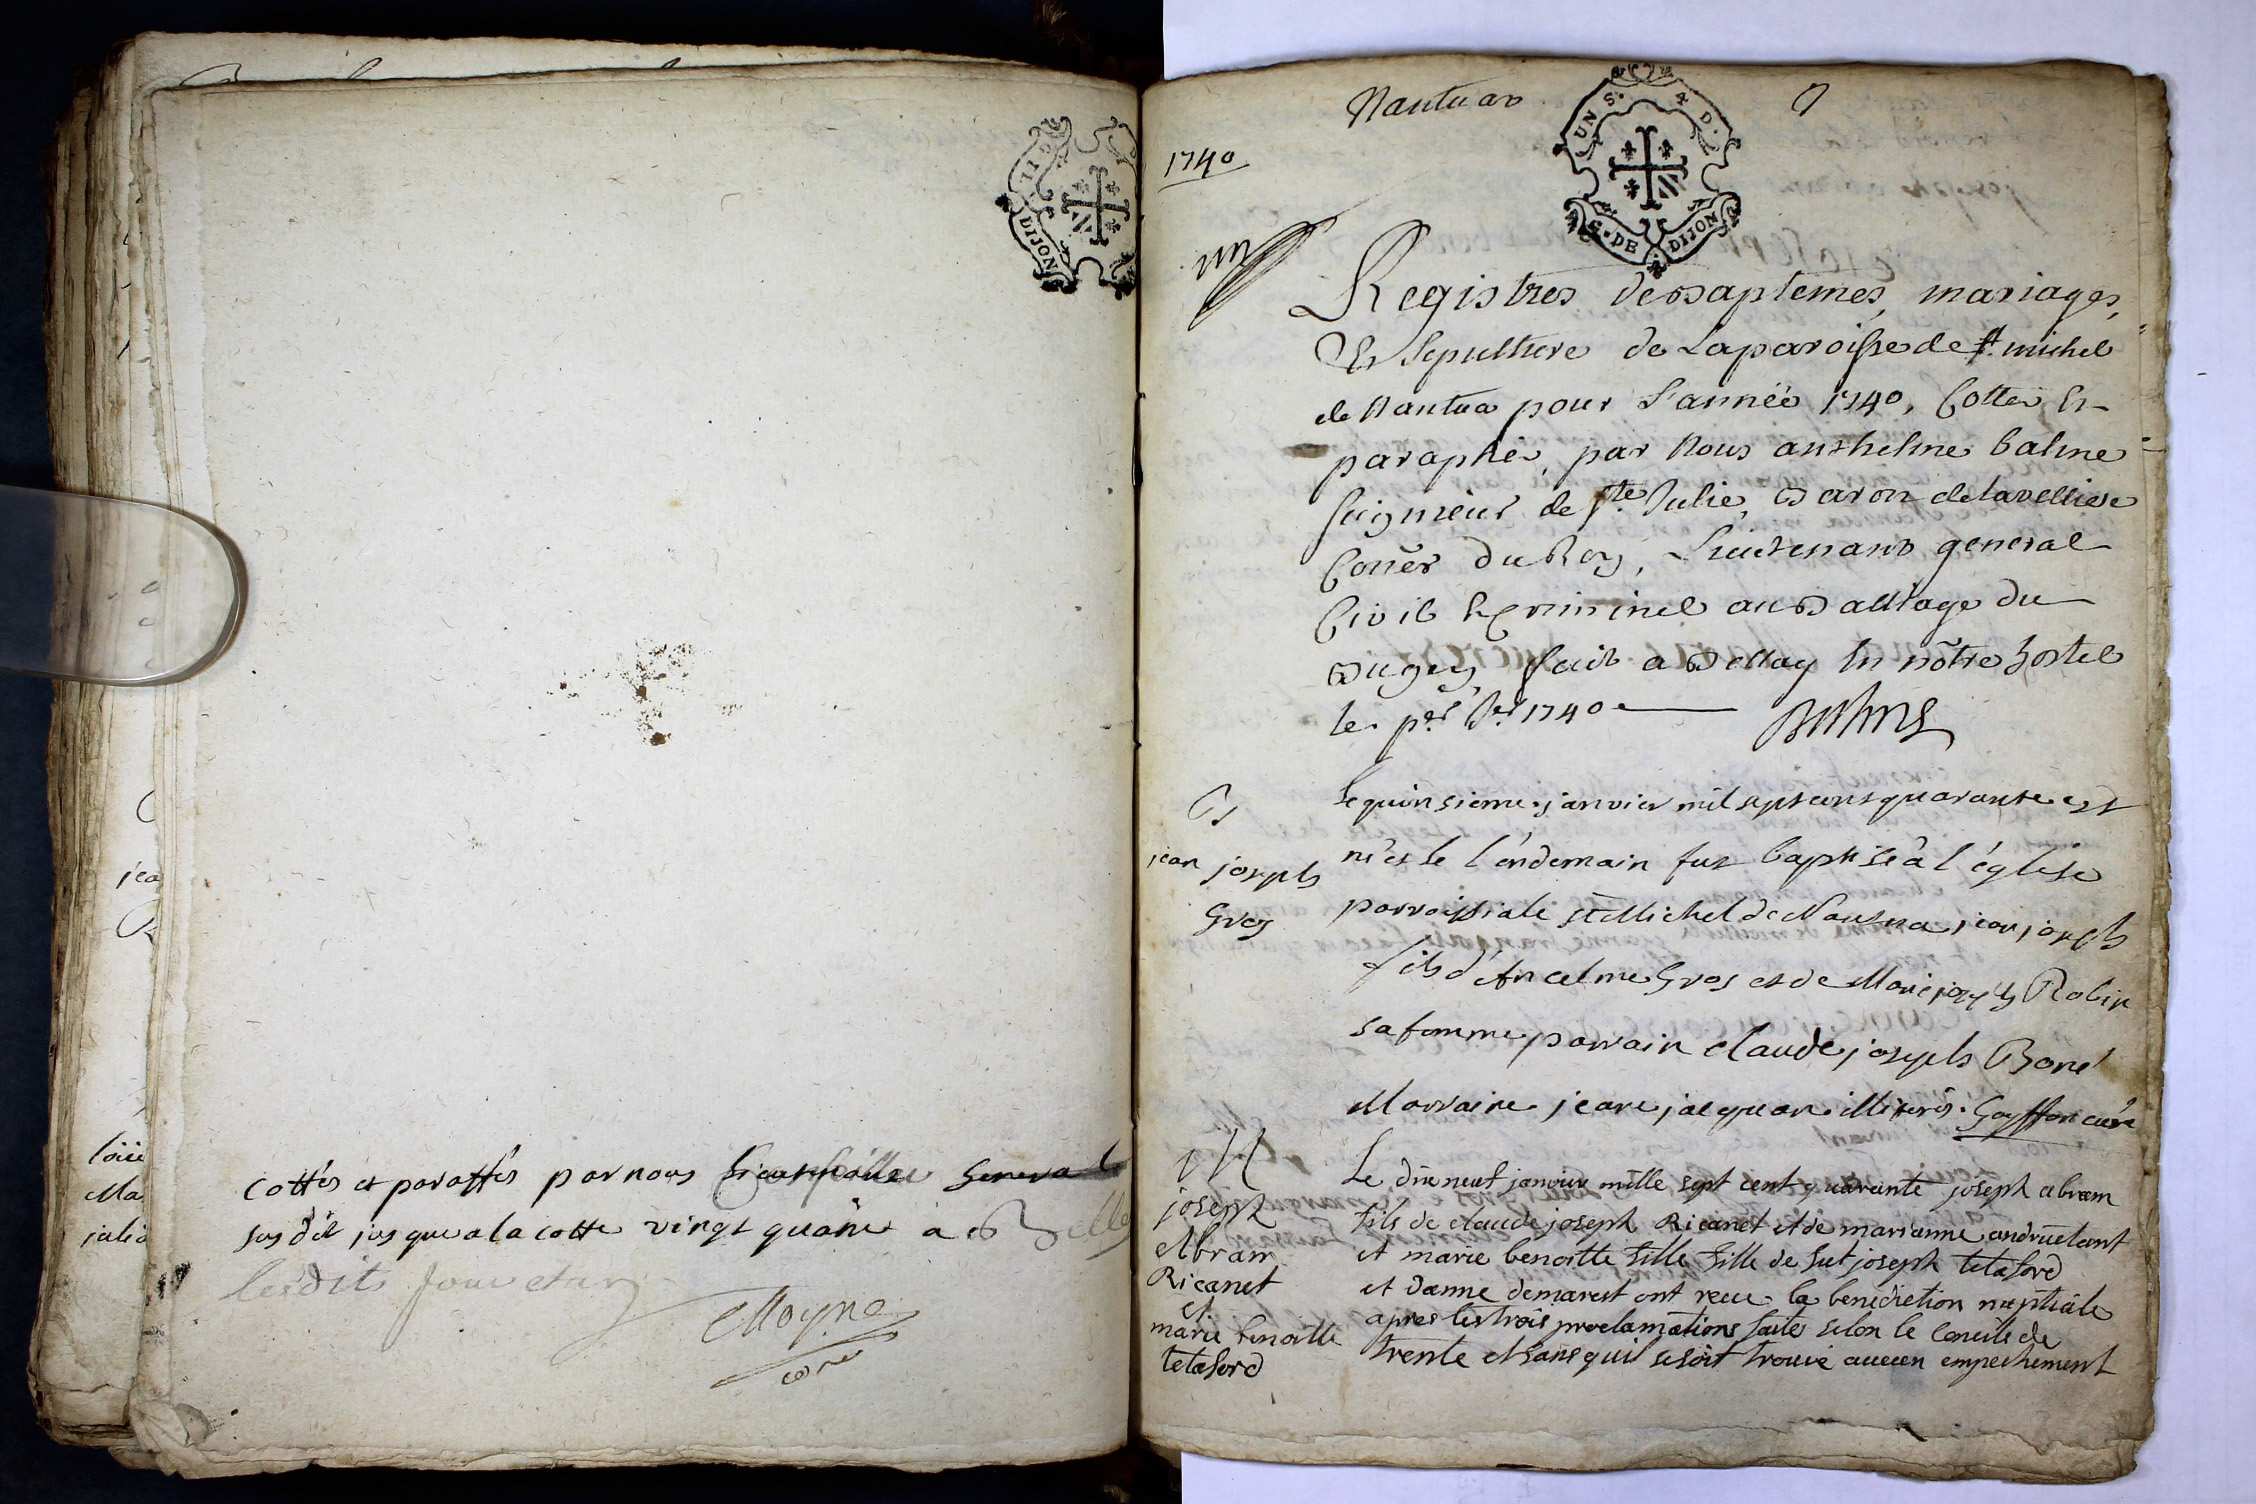 DIJON
cottés et paraffés par nous Conseiller General
sus dit jusque a la cotte vingt quatre à Belley
lesdits jour et an
Moyne
Nantua
UN S. 4 D.
G. DE DIJON
1740
un
Registres de Baptemes, mariages,
Et Sepulture de La paroisse de St. michel
de Nantua pour L'année 1740, Cotté Et
paraphé, par Nous anthelme balme
Seigneur de Ste. Julie, Baron de
Coner du Roy, Lieutenant general
Civil Et Criminel au Balliage du
Bugey, fait a Belley En nôtre hostel
le per. Jer. 1740
Balme
B
jean joseph
Gros
Le quinsieme janvier mil sept cens quarante est
né et le l'endemain fut baptisé à l'église
parroissiale st Michel de Nantua jean joseph
fils d'Ancelme Gros et de Marie joseph Robin
sa femme parrain claude joseph Bonet
Marraine jeane illiterés. Gayffon curé
M
joseph
Abram
Ricanet
et
marie benoitte
tetaford
Le dixneuf janvier mille sept cent quarante joseph abram
fils de claude joseph Ricanet et de marianne
et marie benoitte fille fille de fut joseph tetaford
et d'anne demarest ont recu la benediction nuptiale
apres les trois proclamations faites selon le Concile de
trente et sans quil se soit trouvé aucun empechement